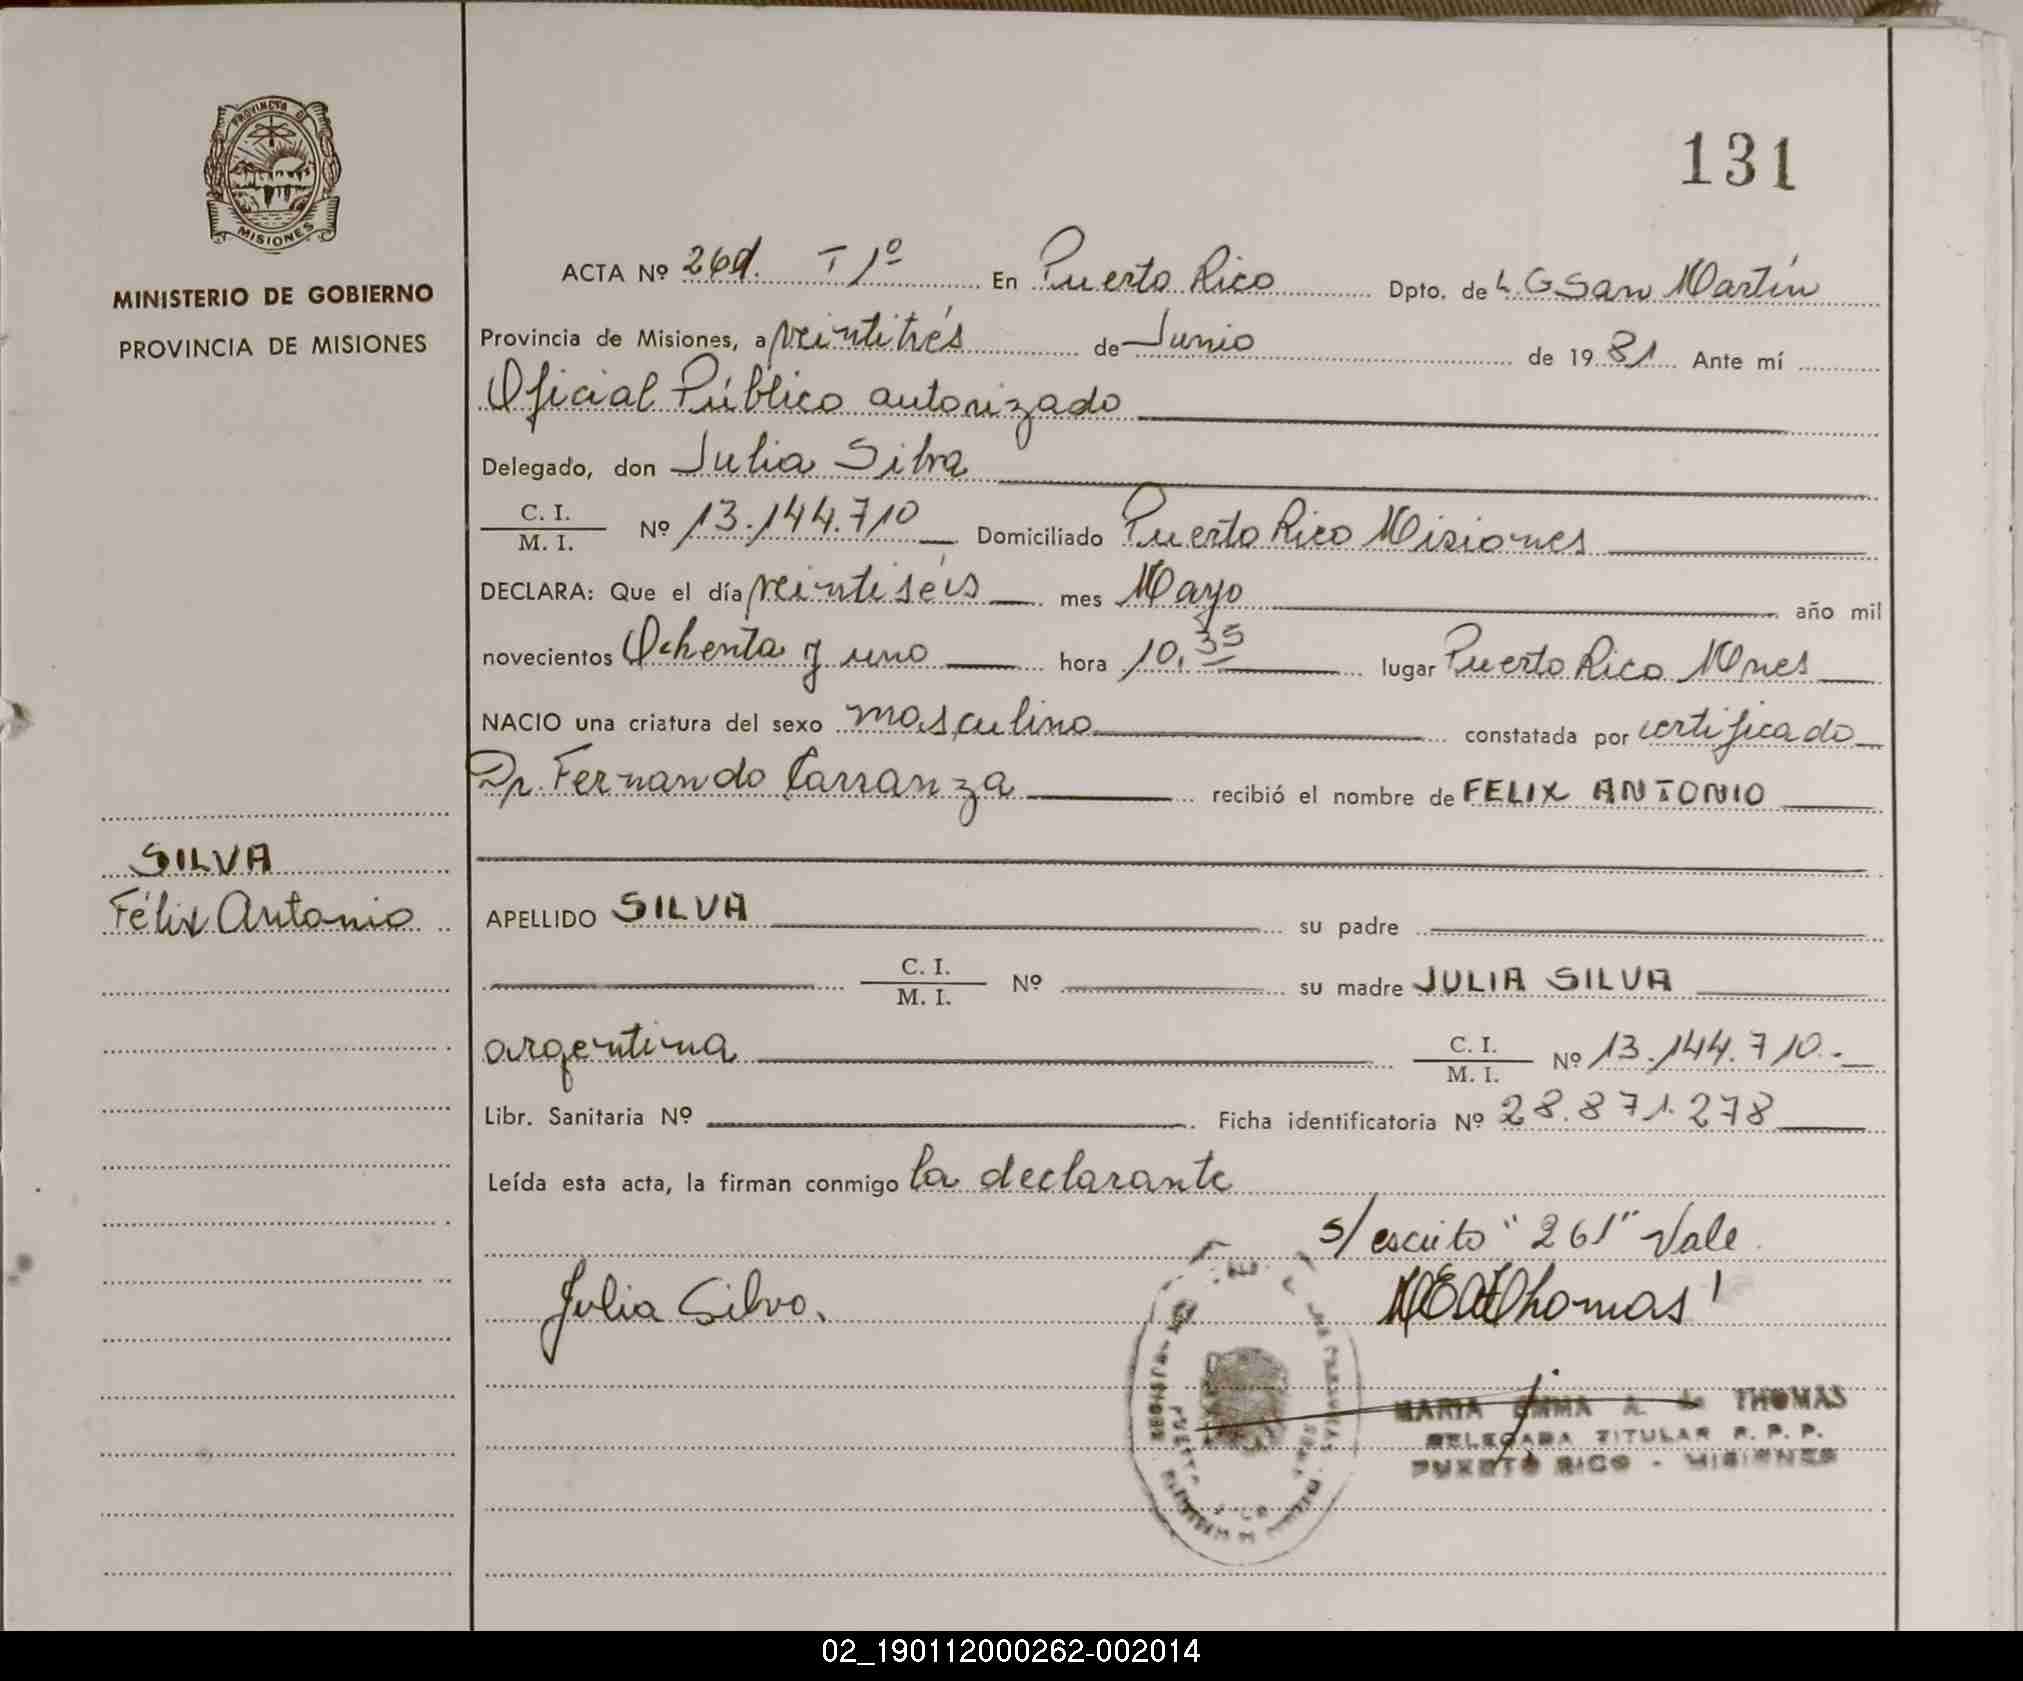 PROVINCIA DE
MISIONES
MINISTERIO DE GOBIERNO
PROVINCIA DE MISIONES
SILVA
Félix Antonio
131
ACTA Nº 261. T 1º En Puerto Rico Dpto. de L G San Martín
Provincia de Misiones, a veintitrés de Junio de 1981 Ante mí
Oficial Público autorizado
Delegado, don Julia Silva
C. I.
M. I. Nº 13.144.710 Domiciliado Puerto Rico Misiones
DECLARA: Que el día veintiséis mes Mayo año mil
novecientos Ochenta y uno hora 10,35 lugar Puerto Rico Mnes
NACIO una criatura del sexo masculino constatada por certificado
Dr. Fernando Carranza recibió el nombre de FELIX ANTONIO
APELLIDO SILVA su padre
C. I.
M. I. Nº su madre JULIA SILVA
argentina C. I.
M. I. Nº 13.144.710.-
Libr. Sanitaria Nº Ficha identificatoria Nº 28.871.278
Leída esta acta, la firman conmigo la declarante
s/escrito "261" Vale
Julia Silva.
Thomas
MARIA EMMA A. de THOMAS
DELEGADA TITULAR R. P. P.
PUERTO RICO - MISIONES
02_190112000262-002014